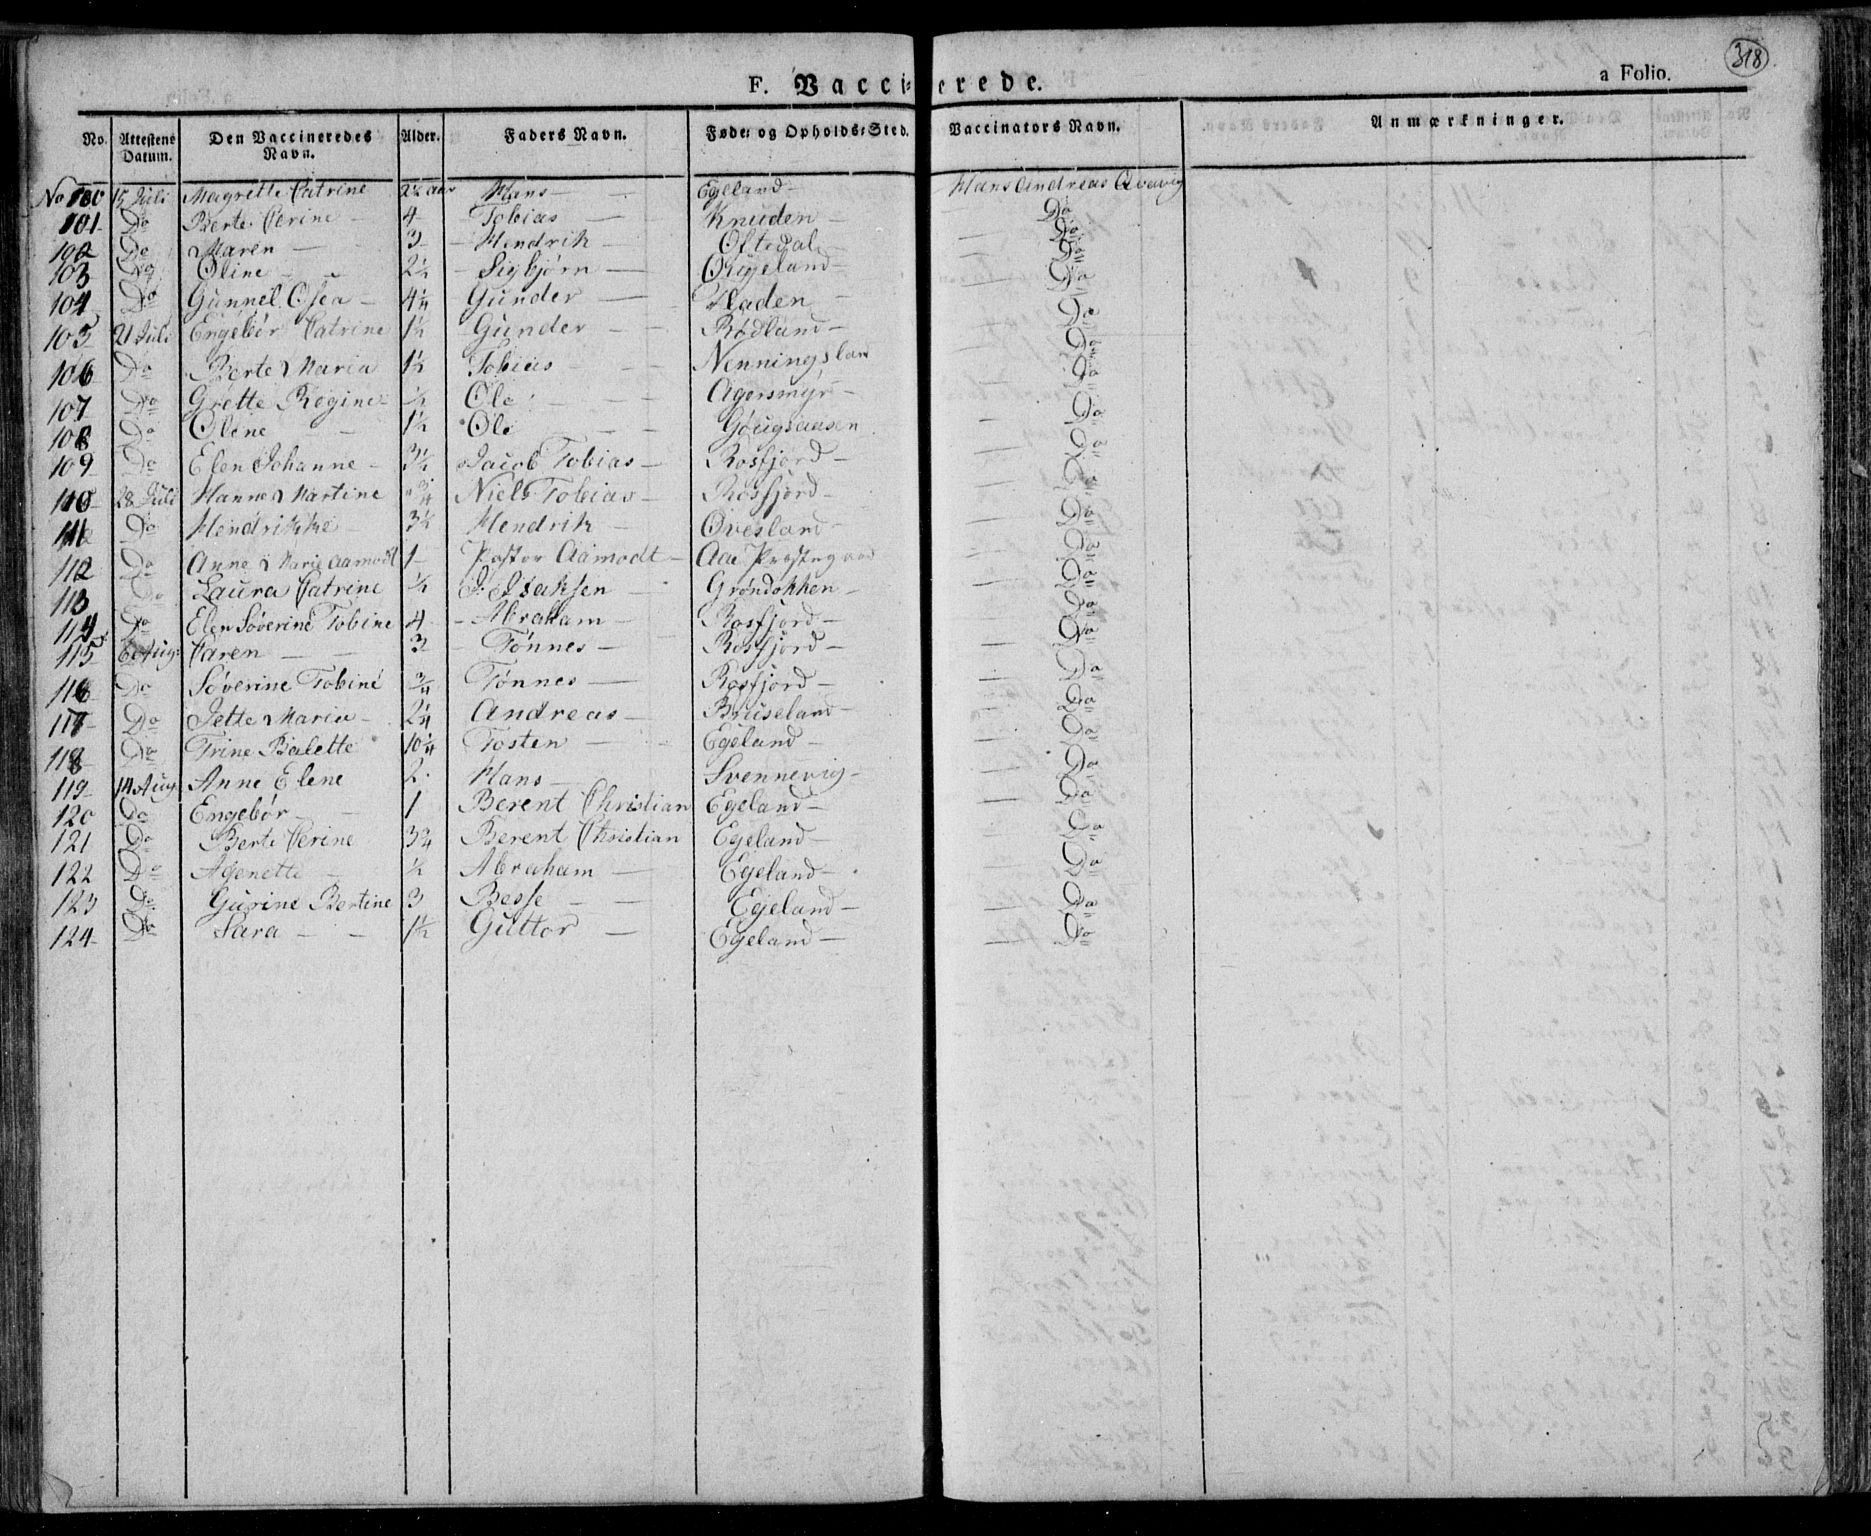 318
F. Vaccinerede. a Folio.
No. Attestens Datum. Den Vaccineredes Navn. Alder. Faders Navn. Føde- og Opholds-Sted. Vaccinators Navn. Anmærkninger.
No 100 15 Juli Magrette Catrine 2½ aar Hans Egeland Hans Andreas Qvavig
101 Do Berte Cerine 4 Tobias Knuden Do
102 Do Maren 3 Hendrik Oftedal Do
103 Do Oline 2½ Sigbjørn Øigeland Do
104 Do Gunnel Osea 4¼ Gunder Haaden Do
105 21 Juli Engebør Catrine 1½ Gunder Rødland Do
106 Do Berte Maria 1½ Tobias Nenningsland Do
107 Do Grette Regine ½ Ole Agersmyr Do
108 Do Olene 1½ Ole Do
109 Do Elen Johanne 3½ Jacob Tobias Rosfjord Do
110 28 Juli Hanne Martine ¾ Niels Tobias Rosfjord Do
111 Do Hendrikke 3½ Hendrik Øvesland Do
112 Do Anne Marie Aamodt 1 Pastor Aamodt Aa Prestegaard Do
113 Do Laura Catrine ½ J. Isaksen Grøndokken Do
114 Do Elen Søverine Tobine 4 Abraham Rosfjord Do
115 6 Aug: Caren 3 Tønnes Rosfjord Do
116 Do Søverine Tobine ¾ Tønnes Rosfjord Do
117 Do Jette Maria 2¼ Andreas Bruseland Do
118 Do Trine Balette 10¼ Tosten Egeland Do
119 14 Aug Anne Elene 2 Hans Svennevig Do
120 Do Engebør 1 Berent Christian Egeland Do
121 Do Berte Cerine 3¾ Berent Christian Egeland Do
122 Do Agenette ½ Abraham Egeland Do
123 Do Gurine Bertine 3 Besse Egeland Do
124 Do Sara 1½ Guttor Egeland Do